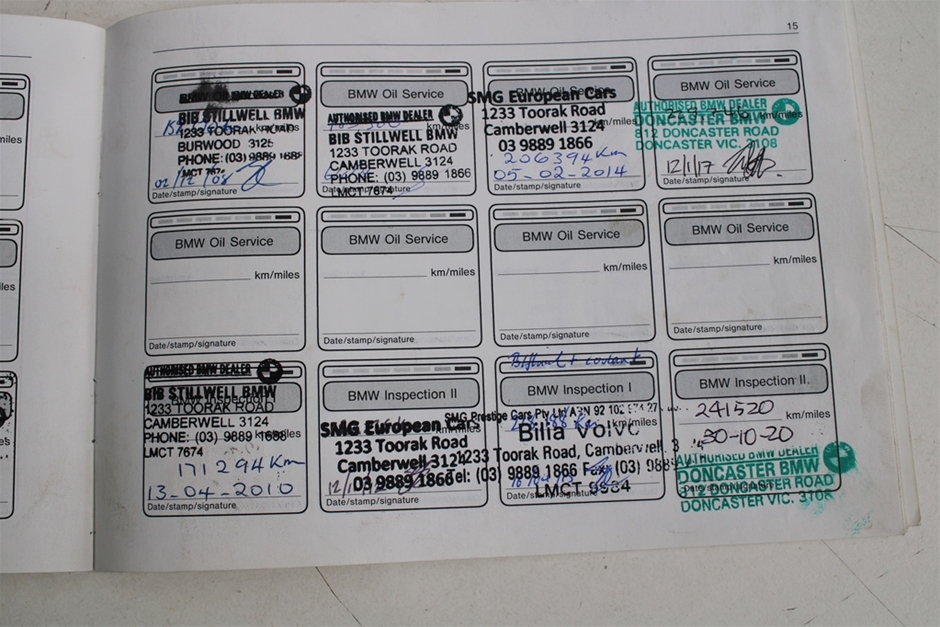 15
AUTHORISED BMW DEALER
BIB STILLWELL BMW
1233 TOORAK ROAD
km/miles
BURWOOD 3125
PHONE: (03) 9889 1688
LMCT 7674
02/12/08
Date/stamp/signature
BMW Oil Service
AUTHORISED BMW DEALER
km/miles
BIB STILLWELL BMW
1233 TOORAK ROAD
CAMBERWELL 3124
PHONE: (03) 9889 1866
Date/stamp/signature
LMCT 7674
BMW Oil Service
SMG European Cars
1233 Toorak Road
km/miles
Camberwell 3124
03 9889 1866
206394 Km
05-02-2014
Date/stamp/signature
BMW Oil Service
AUTHORISED BMW DEALER
km/miles
DONCASTER BMW
812 DONCASTER ROAD
DONCASTER VIC. 3108
12/1/17
Date/stamp/signature
BMW Oil Service
km/miles
Date/stamp/signature
BMW Oil Service
km/miles
Date/stamp/signature
BMW Oil Service
km/miles
Date/stamp/signature
BMW Oil Service
km/miles
Date/stamp/signature
AUTHORISED BMW DEALER
BIB STILLWELL BMW
BMW Inspection I
1233 TOORAK ROAD
CAMBERWELL 3124
km/miles
PHONE: (03) 9889 1688
LMCT 7674
171294 Km
13-04-2010
Date/stamp/signature
BMW Inspection II
SMG European Cars
km/miles
1233 Toorak Road
Camberwell 3124
03 9889 1866
Date/stamp/signature
+ coolant
BMW Inspection I
SMG Prestige Cars Pty Ltd ABN 92 102
Bilia Volvo
1233 Toorak Road, Camberwell 3
Tel: (03) 9889 1866 Fax: (03) 988
LMCT 9534
Date/stamp/signature
BMW Inspection II
241520
km/miles
30-10-20
AUTHORISED BMW DEALER
DONCASTER BMW
Date/stamp/signature
812 DONCASTER ROAD
DONCASTER VIC. 3108